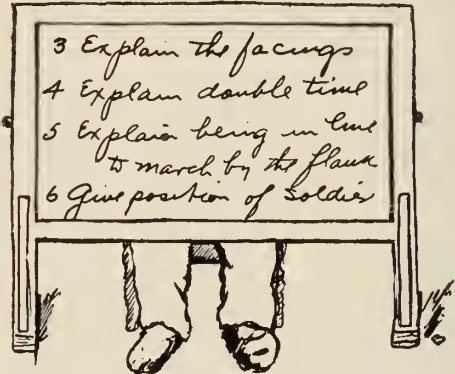 3 Explain the facings
4 Explain double time
5 Explain being in line
to march by the flank
6 Give position of Soldier